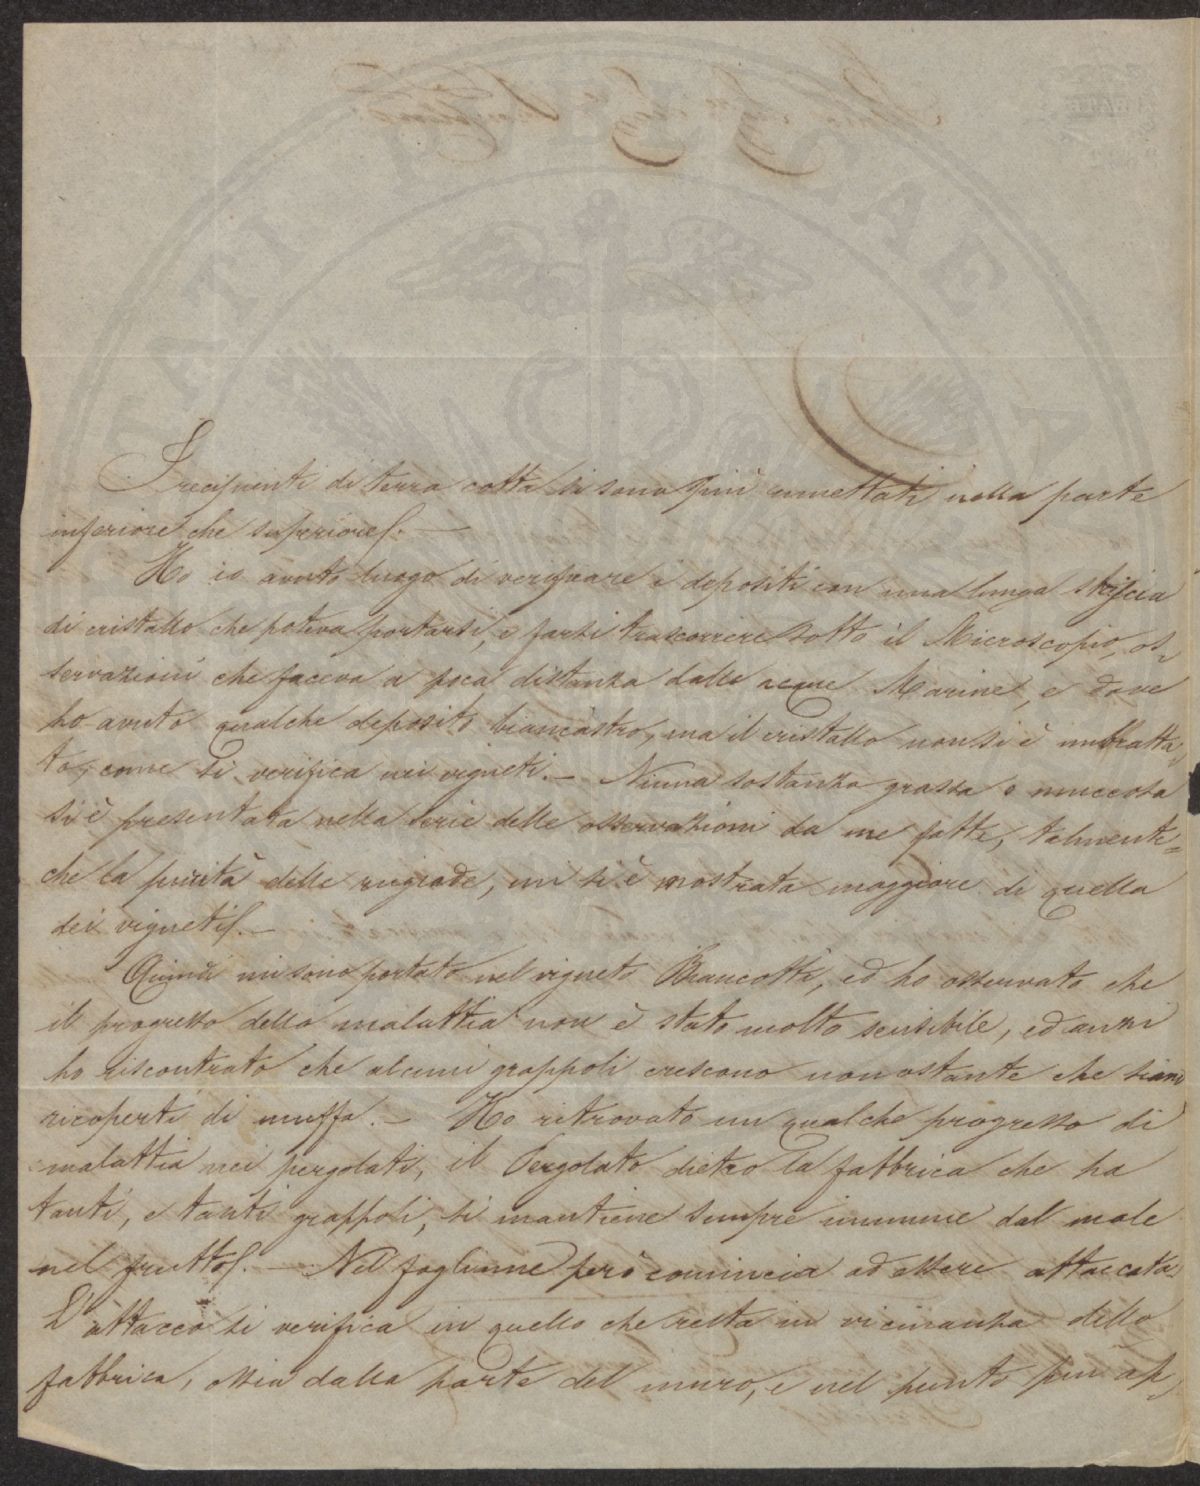 I recipienti di terra cotta si sono più umettati nella parte
inferiore che superiore. —
Ho io avuto luogo di verificare i depositi con una lunga striscia
di cristallo che poteva portarsi, e farsi trascorrere sotto il Microscopio, os-
servazioni che faceva a poca distanza dalle acque Marine, e dove
ho avuto qualche deposito biancastro, ma il cristallo non si è imbratta-
to, come si verifica nei vigneti. — Niuna sostanza grassa o muccosa
si è presentata nella serie delle osservazioni da me fatte, talmente=
che la purità delle rugiade, mi si è mostrata maggiore di quella
dei vigneti. —
Quindi mi sono portato nel vigneto Biancotti, ed ho osservato che
il progresso della malattia non è stato molto sensibile, ed anzi
ho riscontrato che alcuni grappoli crescono non ostante che siano
ricoperti di muffa. — Ho ritrovato un qualche progresso di
malattia nei pergolati, il Pergolato dietro la fabbrica che ha
tanti, e tanti grappoli, si mantiene sempre immune dal male
nel frutto. — Nel fogliame però comincia ad essere attaccato.
L'attacco si verifica in quello che resta in vicinanza della
fabbrica, ossia dalla parte del muro, e nel punto più ap-